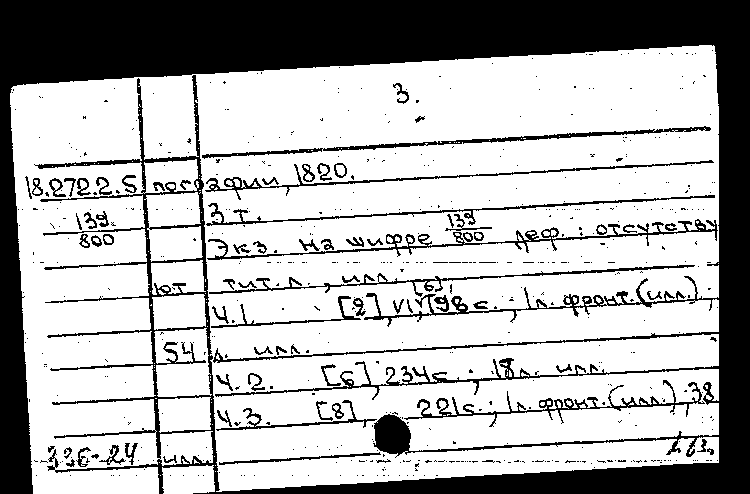 3.
18.272.2.5 пографии, 1820.
139/800 3 т.
Экз. на шифре 139/800 деф.: отсутству
ют тит. л., илл.
Ч.1. [2], VI, [6], 198 с.; 1 л. фронт. (илл.);
54 л. илл.
Ч.2. [6], 234 с.; 18 л. илл.
Ч.3. [8], 221 с.; 1 л. фронт. (илл.); 38
336-24 илл.